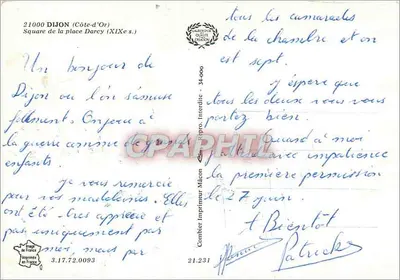 21000 DIJON (Côte-d'Or)
Square de la place Darcy (XIXe s.)
Un bonjour de
Dijon ou l'on s'amuse
follement. On joue à
la guerre comme de grands
enfants.
Je vous remercie
pour vos madeleines. Elles
ont été tres apprécié et
pas uniquement par
moi, mais par
3.17.72.0093
Combier Imprimeur Mâcon
Repro. Interdite - 34-006
21.231
CPARPHIL
tous les camarades
de la chambre et on
est sept.
J'espère que
tous les deux vous vous
portez bien.
Quand à moi
avec impatience
la première permission
le 27 juin.
A Bientôt
Patrick